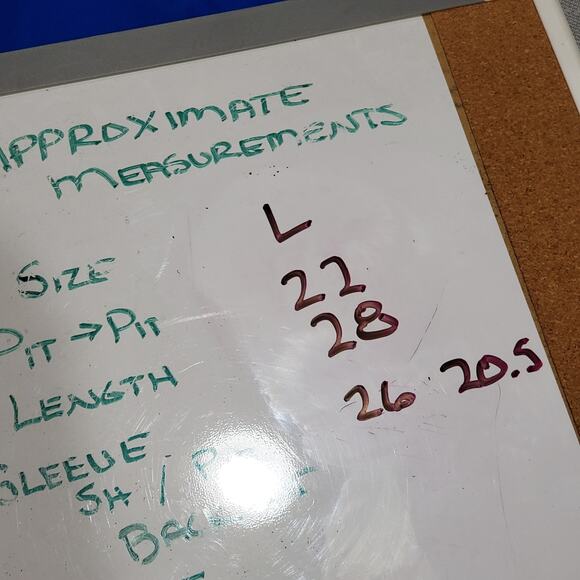 APPROXIMATE
MEASUREMENTS
SIZE L
PIT → PIT 22
LENGTH 28
SLEEVE 26 20.5
SH /